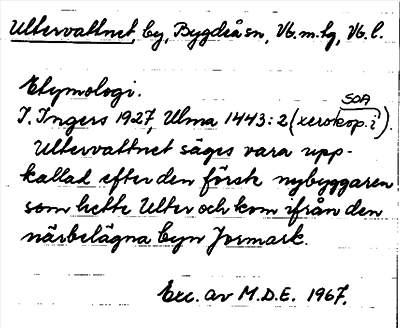 Ultervattnet, by, Bygdeå sn, Vb. m. tg, Vb. l.
Etymologi.
SOA
I. Ingers 1927, Ulma 1443:2 (xerokop. i).
Ultervattnet säges vara upp-
kallad efter den förste nybyggaren
som hette Ulter och kom ifrån den
närbelägna byn Jormark.
Exc. av M.D.E. 1967.